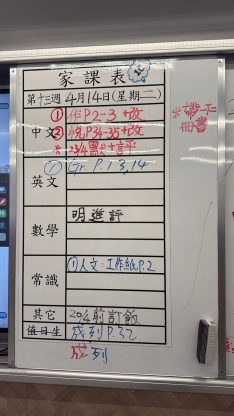 家課表
第十三週 4月14日(星期二)
中文 ① 作P.2-3+改
② 說P.34-35+改
* 23/4默+言平
*帶一下
冊書
英文 ① Gr. P.13,14
數學 明進評
常識 ①人文:工作紙P.2
其它 20/4前訂飯
值日生 成列P.32
成列